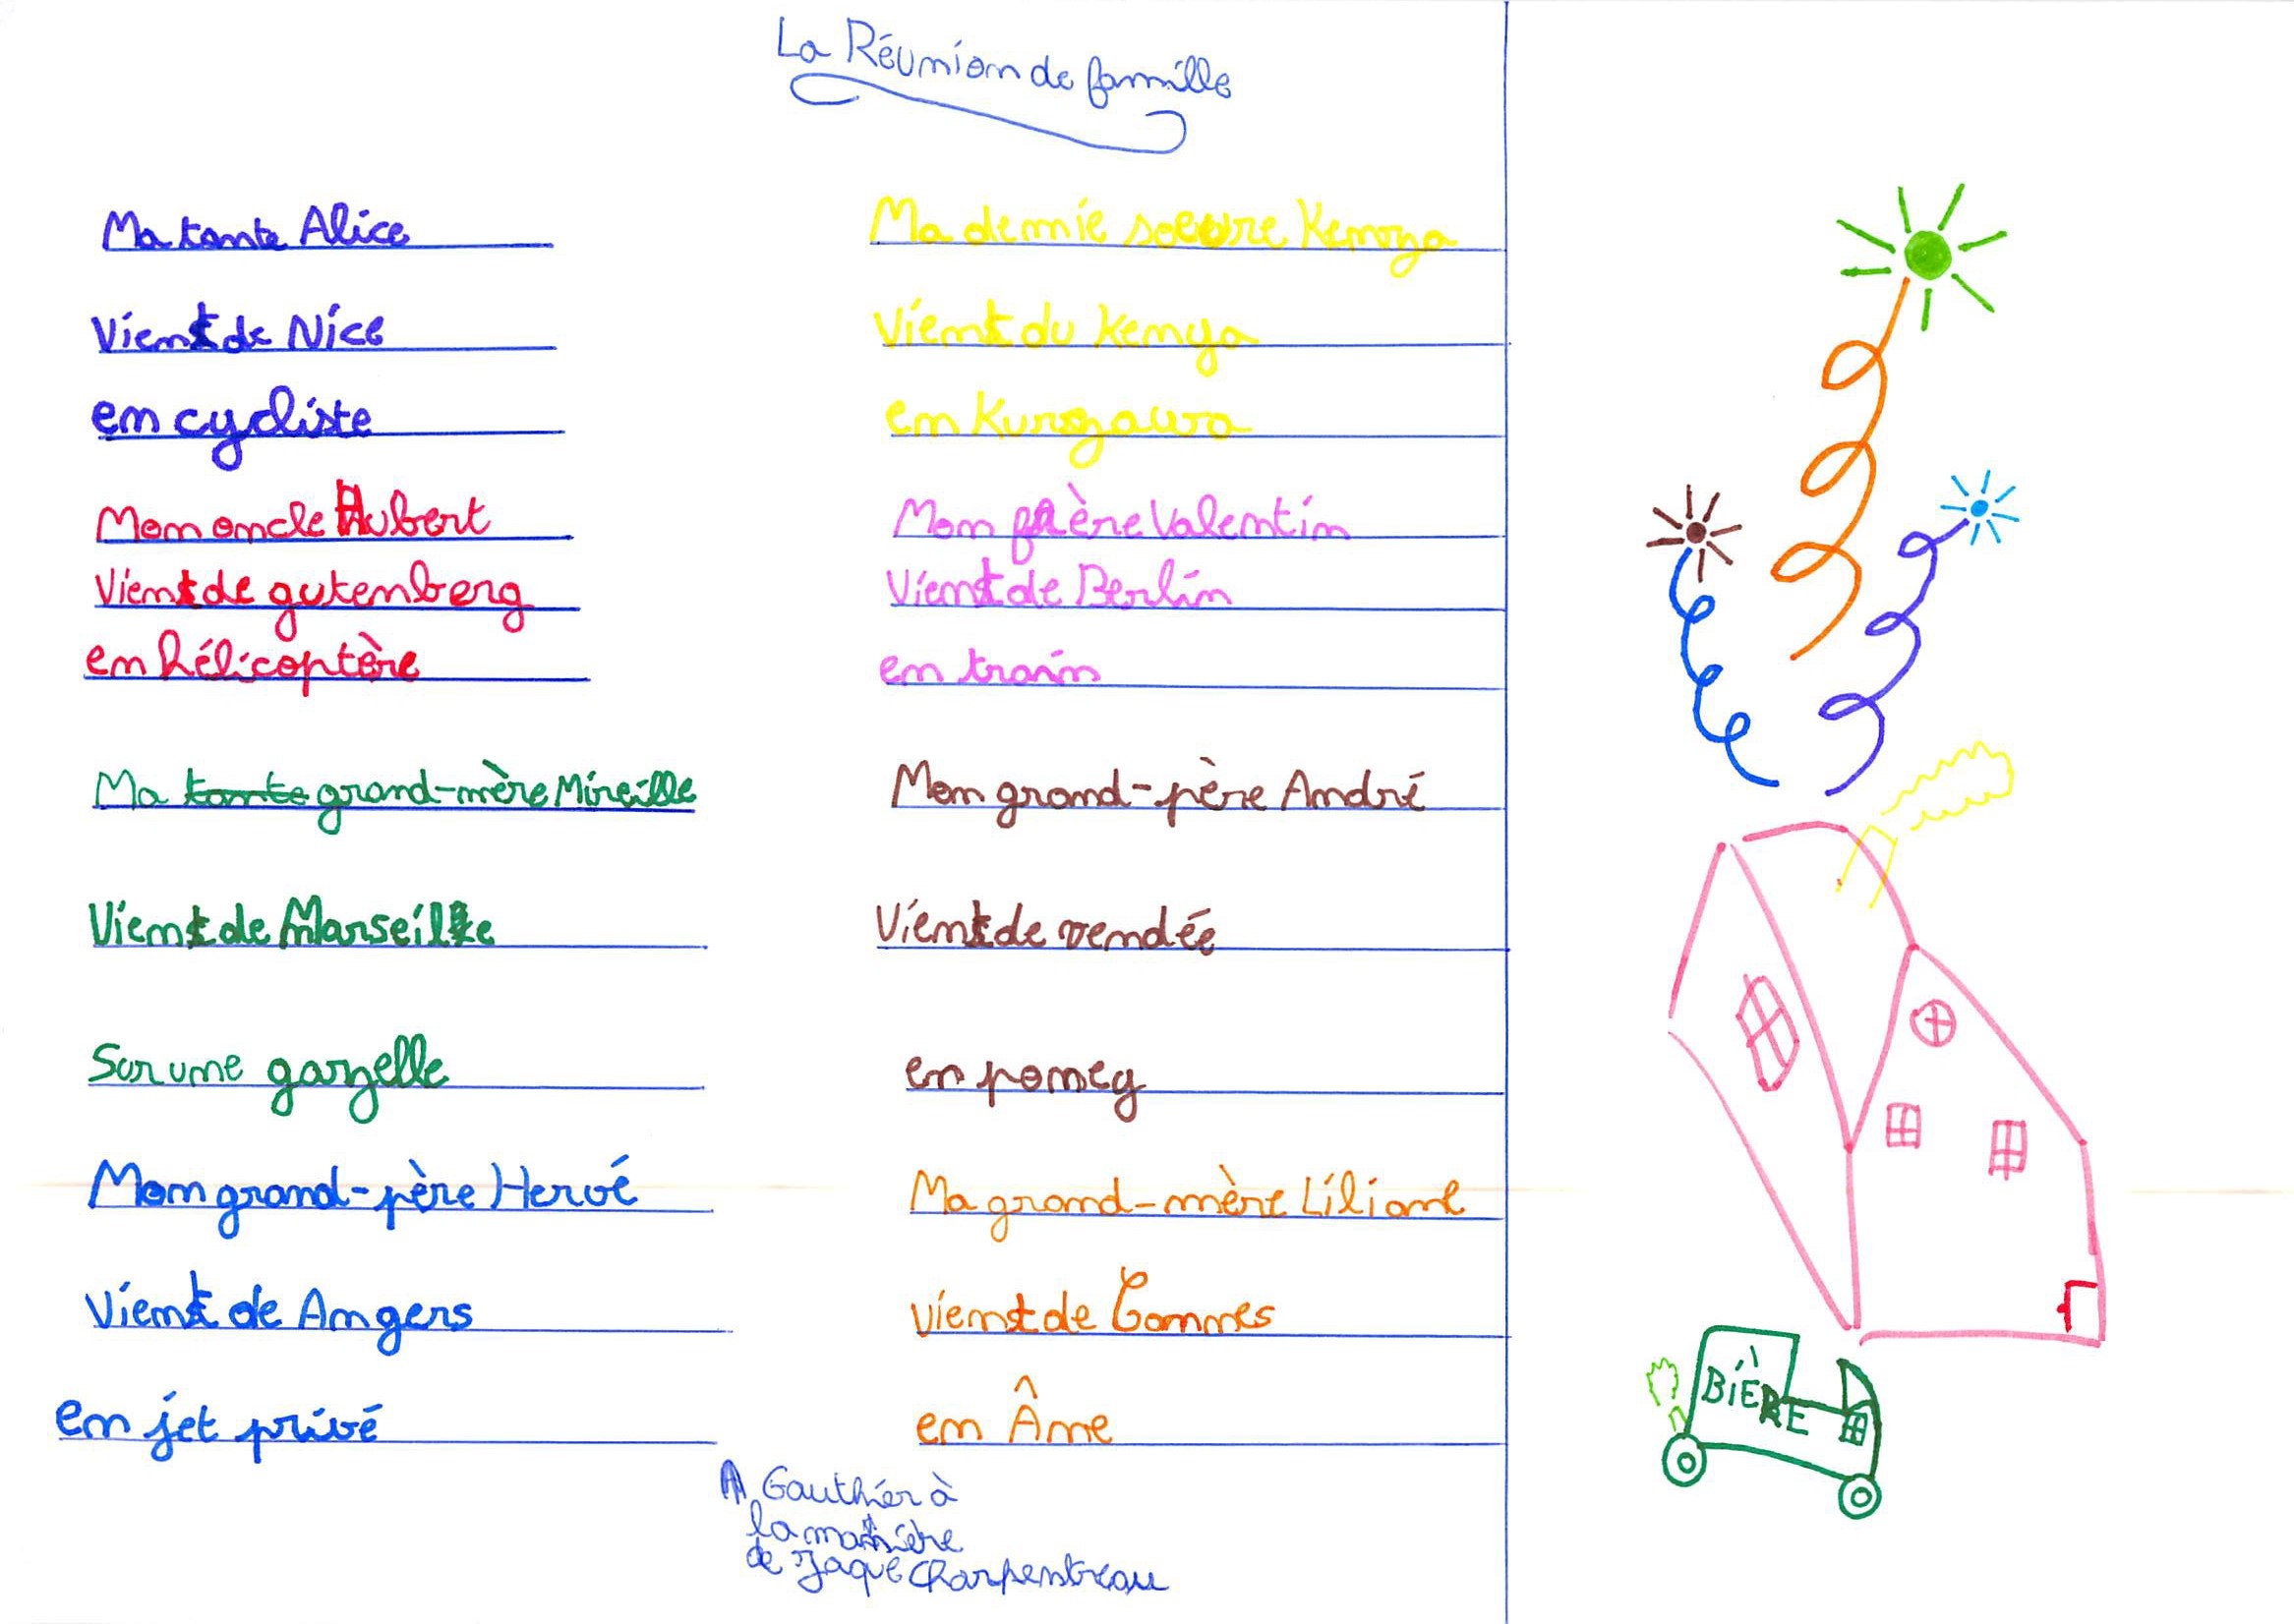 La Réunion de famille
Ma tante Alice
Vient de Nice
en cycliste
Mon oncle Hubert
Vient de gutenberg
en hélicoptère
Ma tante grand-mère Mireille
Vient de Marseille
Sur une gazelle
Mon grand-père Hervé
Vient de Angers
en jet privé
Ma demie soeure Kenya
Vient du Kenya
en
Mon frère Valentin
Vient de Berlin
en train
Mon grand-père André
Vient de vendée
en poney
Ma grand-mère Liliane
Vient de Cannes
en Âne
Gauthier à
la manière
de Jaque Charpentreau
BIÈRE